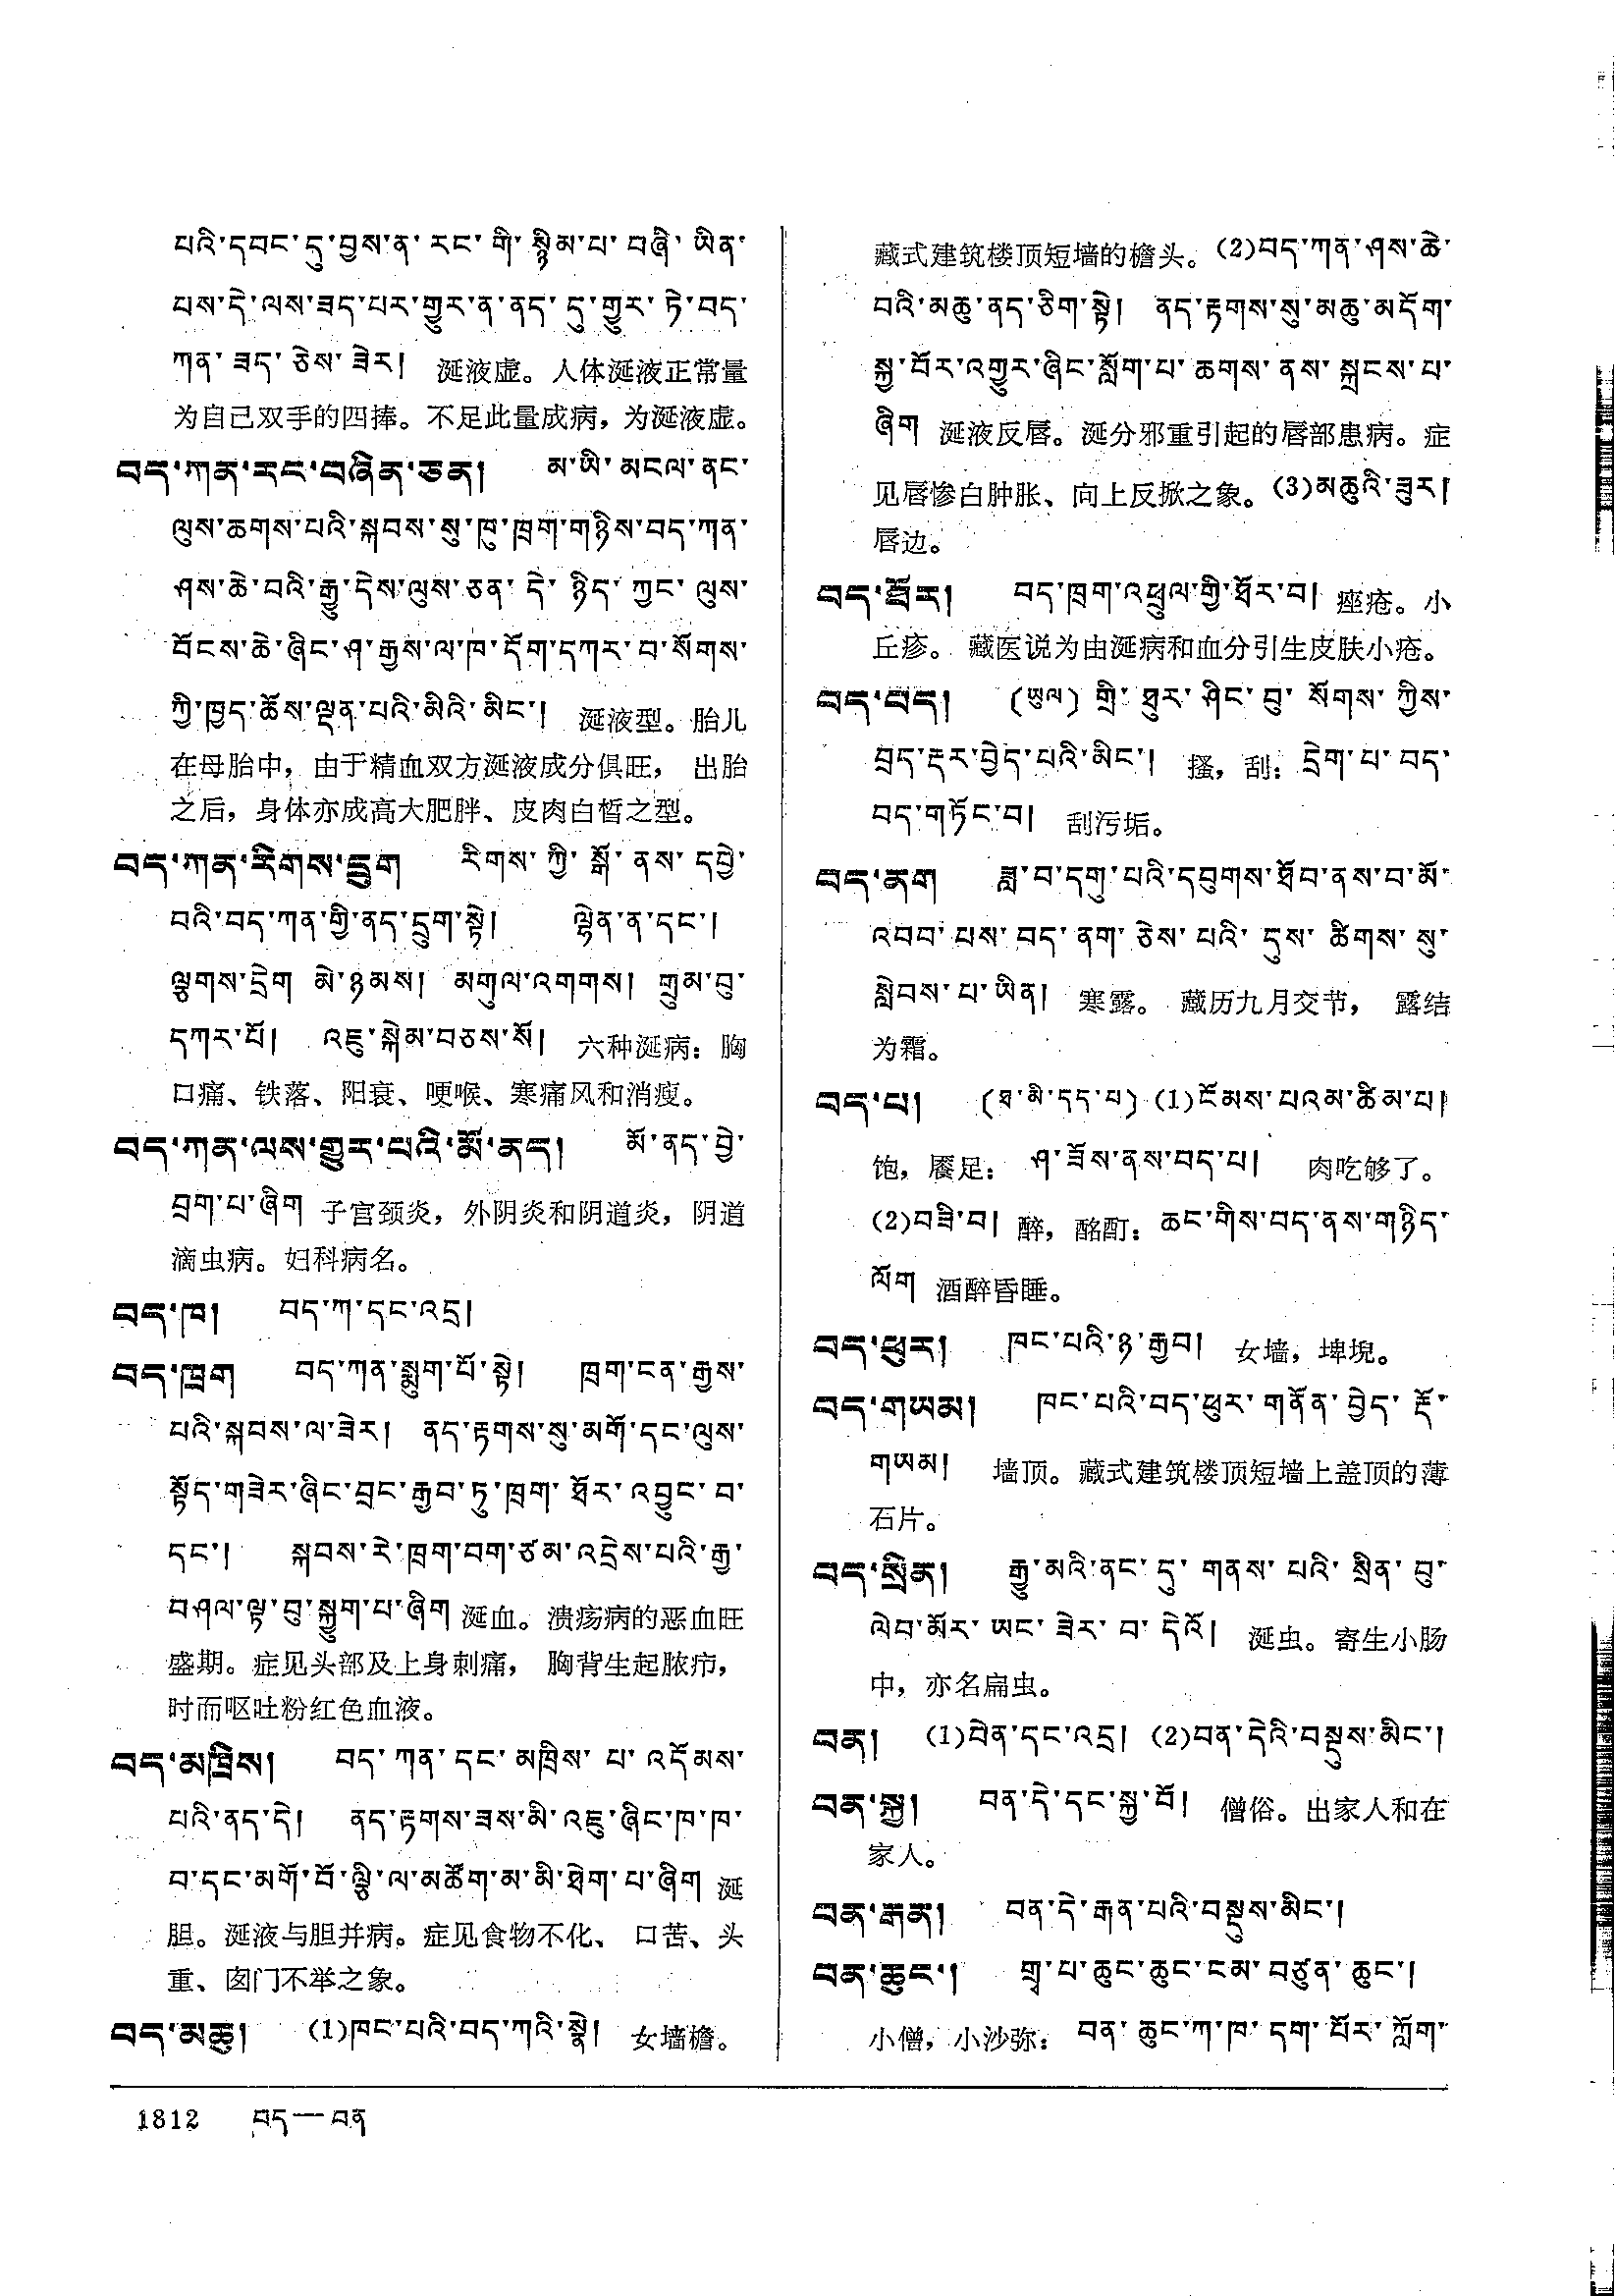 པའི་དབང་དུ་བྱས་ན་རང་གི་སྙིམ་པ་བཞི་ཡིན་
པས་དེ་ལས་ཟད་པར་གྱུར་ན་ནད་དུ་གྱུར་ཏེ་བད་
ཀན་ཟད་ཅེས་ཟེར། 涎液虚。人体涎液正常量
为自己双手的四捧。不足此量成病，为涎液虚。
བད་ཀན་རང་བཞིན་ཅན། མ་ཡི་མངལ་ནང་
ལུས་ཆགས་པའི་སྐབས་སུ་ཁུ་ཁྲག་གཉིས་བད་ཀན་
ཤས་ཆེ་བའི་རྒྱུ་དེས་ལུས་ཅན་དེ་ཉིད་ཀྱང་ལུས་
བོངས་ཆེ་ཞིང་ཤ་རྒྱས་ལ་ཁ་དོག་དཀར་བ་སོགས་
ཀྱི་ཁྱད་ཆོས་ལྡན་པའི་མིའི་མིང་། 涎液型。胎儿
在母胎中，由于精血双方涎液成分俱旺，出胎
之后，身体亦成高大肥胖、皮肉白皙之型。
བད་ཀན་རིགས་དྲུག རིགས་ཀྱི་སྒོ་ནས་དབྱེ་
བའི་བད་ཀན་གྱི་ནད་དྲུག་སྟེ། ལྷེན་ན་དང་།
ལྕགས་དྲེག མེ་ཉམས། མགུལ་འགགས། གྲུམ་བུ་
དཀར་པོ། འཇུ་སྐེམ་བཅས་སོ། 六种涎病：胸
口痛、铁落、阳衰、哽喉、寒痛风和消瘦。
བད་ཀན་ལས་གྱུར་པའི་མོ་ནད། མོ་ནད་བྱེ་
བྲག་པ་ཞིག 子宫颈炎，外阴炎和阴道炎，阴道
滴虫病。妇科病名。
བད་ཁ། བད་ཀ་དང་འདྲ།
བད་ཁྲག བད་ཀན་སྨུག་པོ་སྟེ། ཁྲག་ངན་རྒྱས་
པའི་སྐབས་ལ་ཟེར། ནད་རྟགས་སུ་མགོ་དང་ལུས་
སྟོད་གཟེར་ཞིང་བྲང་རྒྱབ་ཏུ་ཁྲག་ཐོར་འབྱུང་བ་
དང་། སྐབས་རེ་ཁྲག་བག་ཙམ་འདྲེས་པའི་རྒྱ་
བཤལ་ལྟ་བུ་སྐྱུག་པ་ཞིག 涎血。溃疡病的恶血旺
盛期。症见头部及上身刺痛，胸背生起脓疖，
时而呕吐粉红色血液。
བད་མཁྲིས། བད་ཀན་དང་མཁྲིས་པ་འདོམས་
པའི་ནད་དེ། ནད་རྟགས་ཟས་མི་འཇུ་ཞིང་ཁ་ཁ་
བ་དང་མགོ་བོ་ལྕི་ལ་མཚོག་མ་མི་ཐེག་པ་ཞིག 涎
胆。涎液与胆并病。症见食物不化、口苦、头
重、囟门不举之象。
བད་མཆུ། (1)ཁང་པའི་བད་ཀའི་སྣེ། 女墙檐。
藏式建筑楼顶短墙的檐头。(2)བད་ཀན་ཤས་ཆེ་
བའི་མཆུ་ནད་ཅིག་སྟེ། ནད་རྟགས་སུ་མཆུ་མདོག་
སྐྱ་བོར་འགྱུར་ཞིང་སློག་པ་ཆགས་ནས་སྐྲངས་པ་
ཞིག 涎液反唇。涎分邪重引起的唇部患病。症
见唇惨白肿胀、向上反掀之象。(3)མཆུའི་ཟུར།
唇边。
བད་ཐོར། བད་ཁྲག་འཕྲུལ་གྱི་ཐོར་བ། 痤疮。小
丘疹。藏医说为由涎病和血分引生皮肤小疮。
བད་བད། (ཡུལ) གྲི་ཐུར་ཤིང་བུ་སོགས་ཀྱིས་
བྲད་རྡར་བྱེད་པའི་མིང་། 搔，刮：དྲེག་པ་བད་
བད་གཏོང་བ། 刮污垢。
བད་ནག ཟླ་བ་དགུ་པའི་དབུགས་ཐོབ་ནས་བ་མོ་
འབབ་པས་བད་ནག་ཅེས་པའི་དུས་ཚིགས་སུ་
སླེབས་པ་ཡིན། 寒露。藏历九月交节，露结
为霜。
བད་པ། (ཐ་མི་དད་པ) (1)ངོམས་པའམ་ཚིམ་པ།
饱，餍足：ཤ་ཟོས་ནས་བད་པ། 肉吃够了。
(2)བཟི་བ། 醉，酩酊：ཆང་གིས་བད་ནས་གཉིད་
ལོག 酒醉昏睡。
བད་ཕུར། ཁང་པའི་ཉ་རྒྱབ། 女墙，埤堄。
བད་གཡམ། ཁང་པའི་བད་ཕུར་གནོན་བྱེད་རྡོ་
གཡམ། 墙顶。藏式建筑楼顶短墙上盖顶的薄
石片。
བད་སྲིན། རྒྱུ་མའི་ནང་དུ་གནས་པའི་སྲིན་བུ་
ལེབ་མོར་ཡང་ཟེར་བ་དེའོ། 涎虫。寄生小肠
中，亦名扁虫。
བན། (1)བེན་དང་འདྲ། (2)བན་དེའི་བསྡུས་མིང་།
བན་སྐྱ། བན་དེ་དང་སྐྱ་བོ། 僧俗。出家人和在
家人。
བན་རྒན། བན་དེ་རྒན་པའི་བསྡུས་མིང་།
བན་ཆུང་། གྲྭ་པ་ཆུང་ཆུང་ངམ་བཙུན་ཆུང་།
小僧，小沙弥：བན་ཆུང་ཀ་ཁ་དག་པོར་ཀློག་
1812 བད — བན